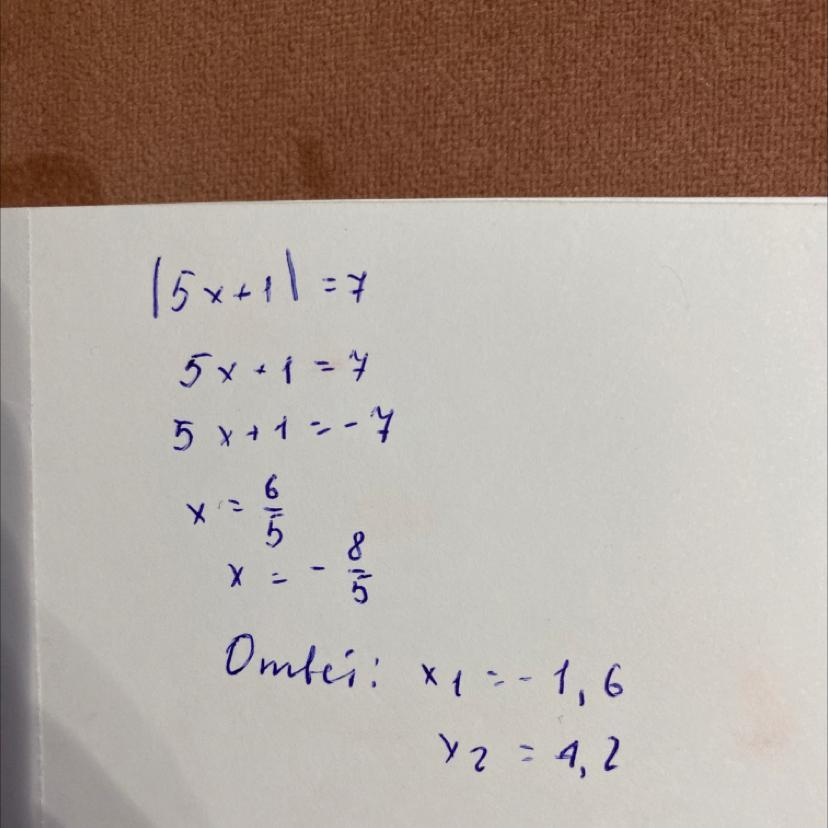 |5x+1| =7
5x+1=7
5x+1=-7
x = 6/5
x = - 8/5
Ответ: x1=-1,6
x2 = 1,2